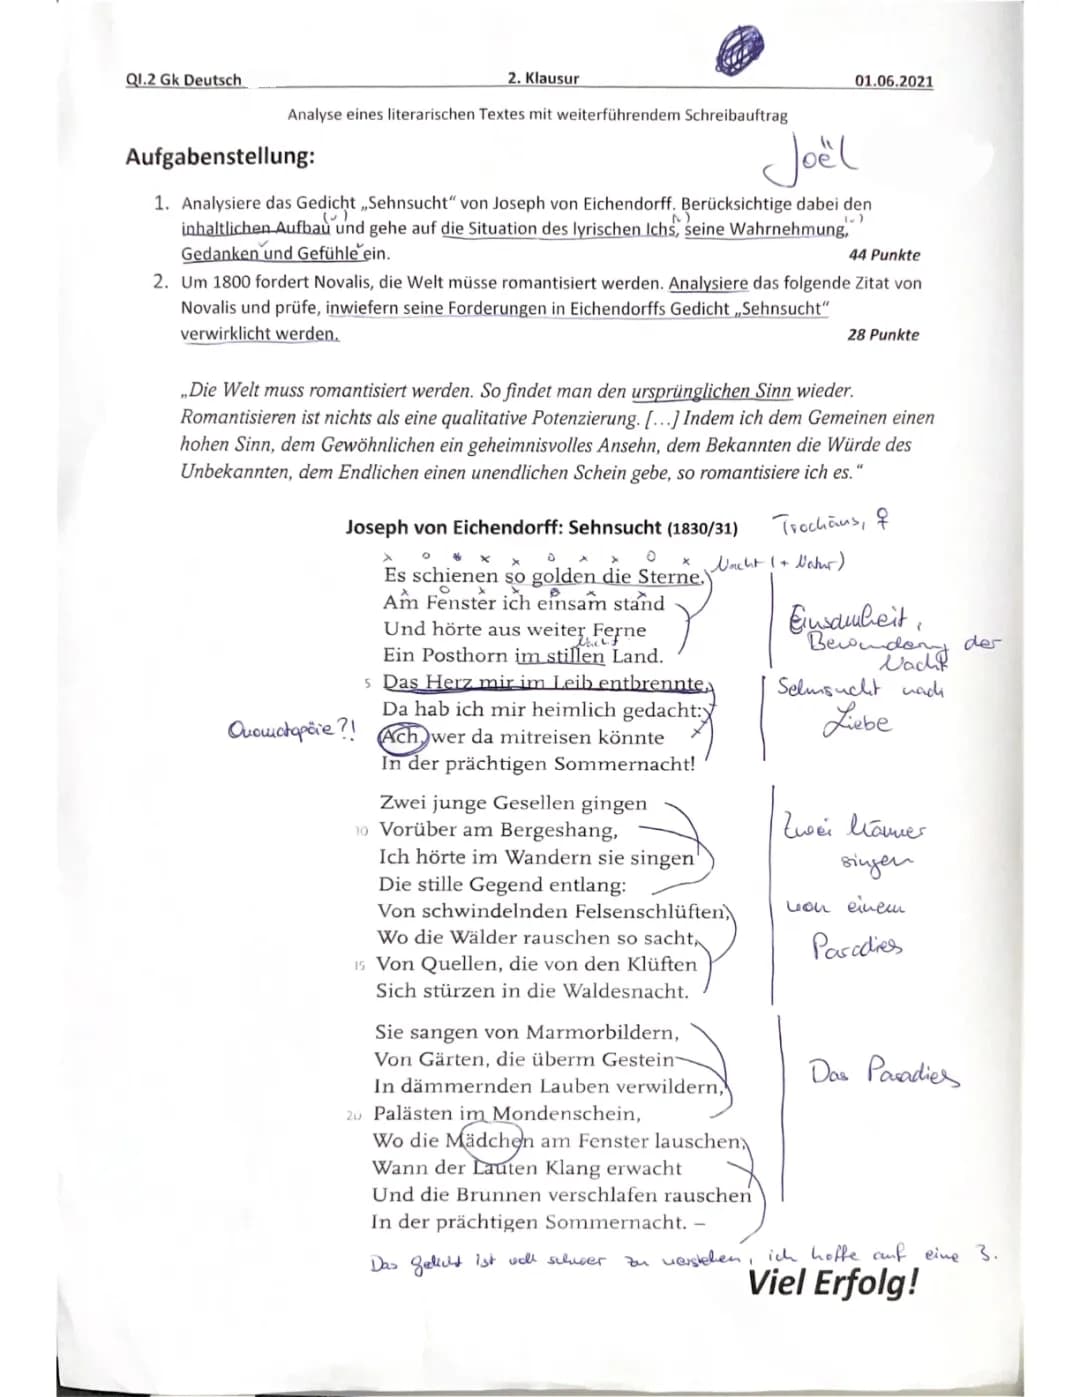 QI.2 Gk Deutsch 2. Klausur 01.06.2021
Analyse eines literarischen Textes mit weiterführendem Schreibauftrag
Joël
Aufgabenstellung:
1. Analysiere das Gedicht „Sehnsucht“ von Joseph von Eichendorff. Berücksichtige dabei den
inhaltlichen Aufbau und gehe auf die Situation des lyrischen Ichs, seine Wahrnehmung,
Gedanken und Gefühle ein. 44 Punkte
2. Um 1800 fordert Novalis, die Welt müsse romantisiert werden. Analysiere das folgende Zitat von
Novalis und prüfe, inwiefern seine Forderungen in Eichendorffs Gedicht „Sehnsucht“
verwirklicht werden. 28 Punkte
„Die Welt muss romantisiert werden. So findet man den ursprünglichen Sinn wieder.
Romantisieren ist nichts als eine qualitative Potenzierung. [...] Indem ich dem Gemeinen einen
hohen Sinn, dem Gewöhnlichen ein geheimnisvolles Ansehn, dem Bekannten die Würde des
Unbekannten, dem Endlichen einen unendlichen Schein gebe, so romantisiere ich es.“
Joseph von Eichendorff: Sehnsucht (1830/31) Trochäus, ♀
Nacht (+ Natur)
Es schienen so golden die Sterne,
Am Fenster ich einsam stand
Und hörte aus weiter Ferne
Ein Posthorn im stillen Land.
Einsamkeit,
Bewunderung der
Nacht
5 Das Herz mir im Leib entbrennte,
Da hab ich mir heimlich gedacht:
Ach, wer da mitreisen könnte
In der prächtigen Sommernacht!
Sehnsucht nach
Liebe
Onomatopöie?!
Zwei junge Gesellen gingen
10 Vorüber am Bergeshang,
Ich hörte im Wandern sie singen
Die stille Gegend entlang:
Von schwindelnden Felsenschlüften,
Wo die Wälder rauschen so sacht,
15 Von Quellen, die von den Klüften
Sich stürzen in die Waldesnacht.
Zwei Männer
singen
von einem
Paradies
Sie sangen von Marmorbildern,
Von Gärten, die überm Gestein
In dämmernden Lauben verwildern,
20 Palästen im Mondenschein,
Wo die Mädchen am Fenster lauschen,
Wann der Lauten Klang erwacht
Und die Brunnen verschlafen rauschen
In der prächtigen Sommernacht. –
Das Paradies
Das Gedicht ist voll schwer zu verstehen, ich hoffe auf eine 3.
Viel Erfolg!